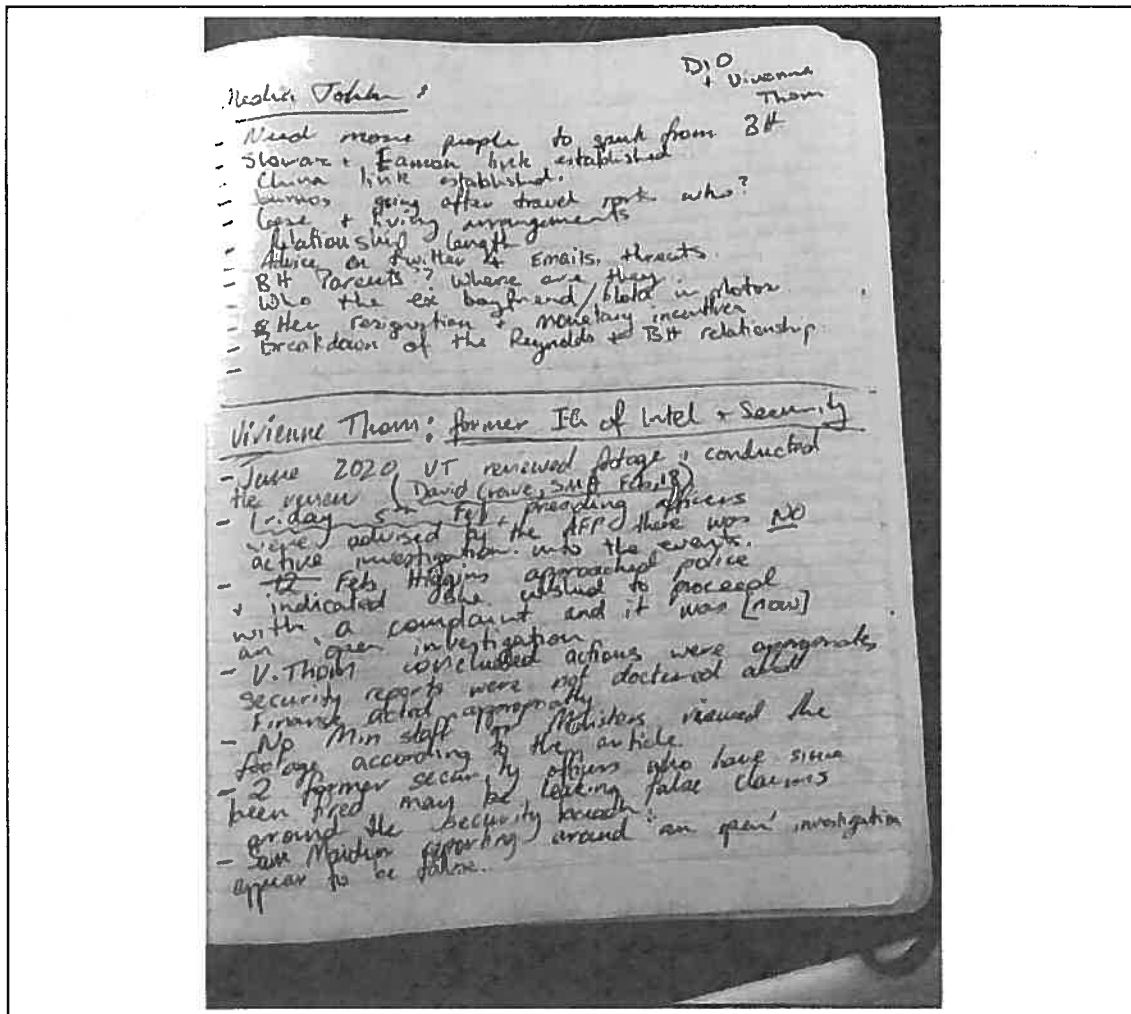 DIO
+ Vivenne
Thom
Media :
- Need more people to speak from BH
- Sharaz + Eamon link established
- China link established.
- going after travel who?
- + living arrangements
- Relationship length
- Advice on twitter & Emails, threats.
- BH Parents? Where are they
- Who the ex boyfriend/ in photos
- Her resignation + monetary incentive
- Breakdown of the Reynolds + BH relationship
-
Vivienne Thom: former IG of Intel + Security
- June 2020 VT reviewed footage + conducted
the review (David Crowe, SMH Feb, 18)
- Friday 5th Feb, presiding officers
were advised by the AFP there was NO
active investigation into the events.
- 12 Feb Higgins approached police
+ indicated she wished to proceed
with a complaint and it was [now]
an open investigation
- V. Thom concluded actions were appropriate
security reports were not doctored
Finance acted appropriately
- No Min staff or Ministers viewed the
footage according to the article
- 2 former security officers who have since
been fired may be leaking false claims
around the security breach.
- Sam Maiden reporting around 'an open' investigation
appear to be false.